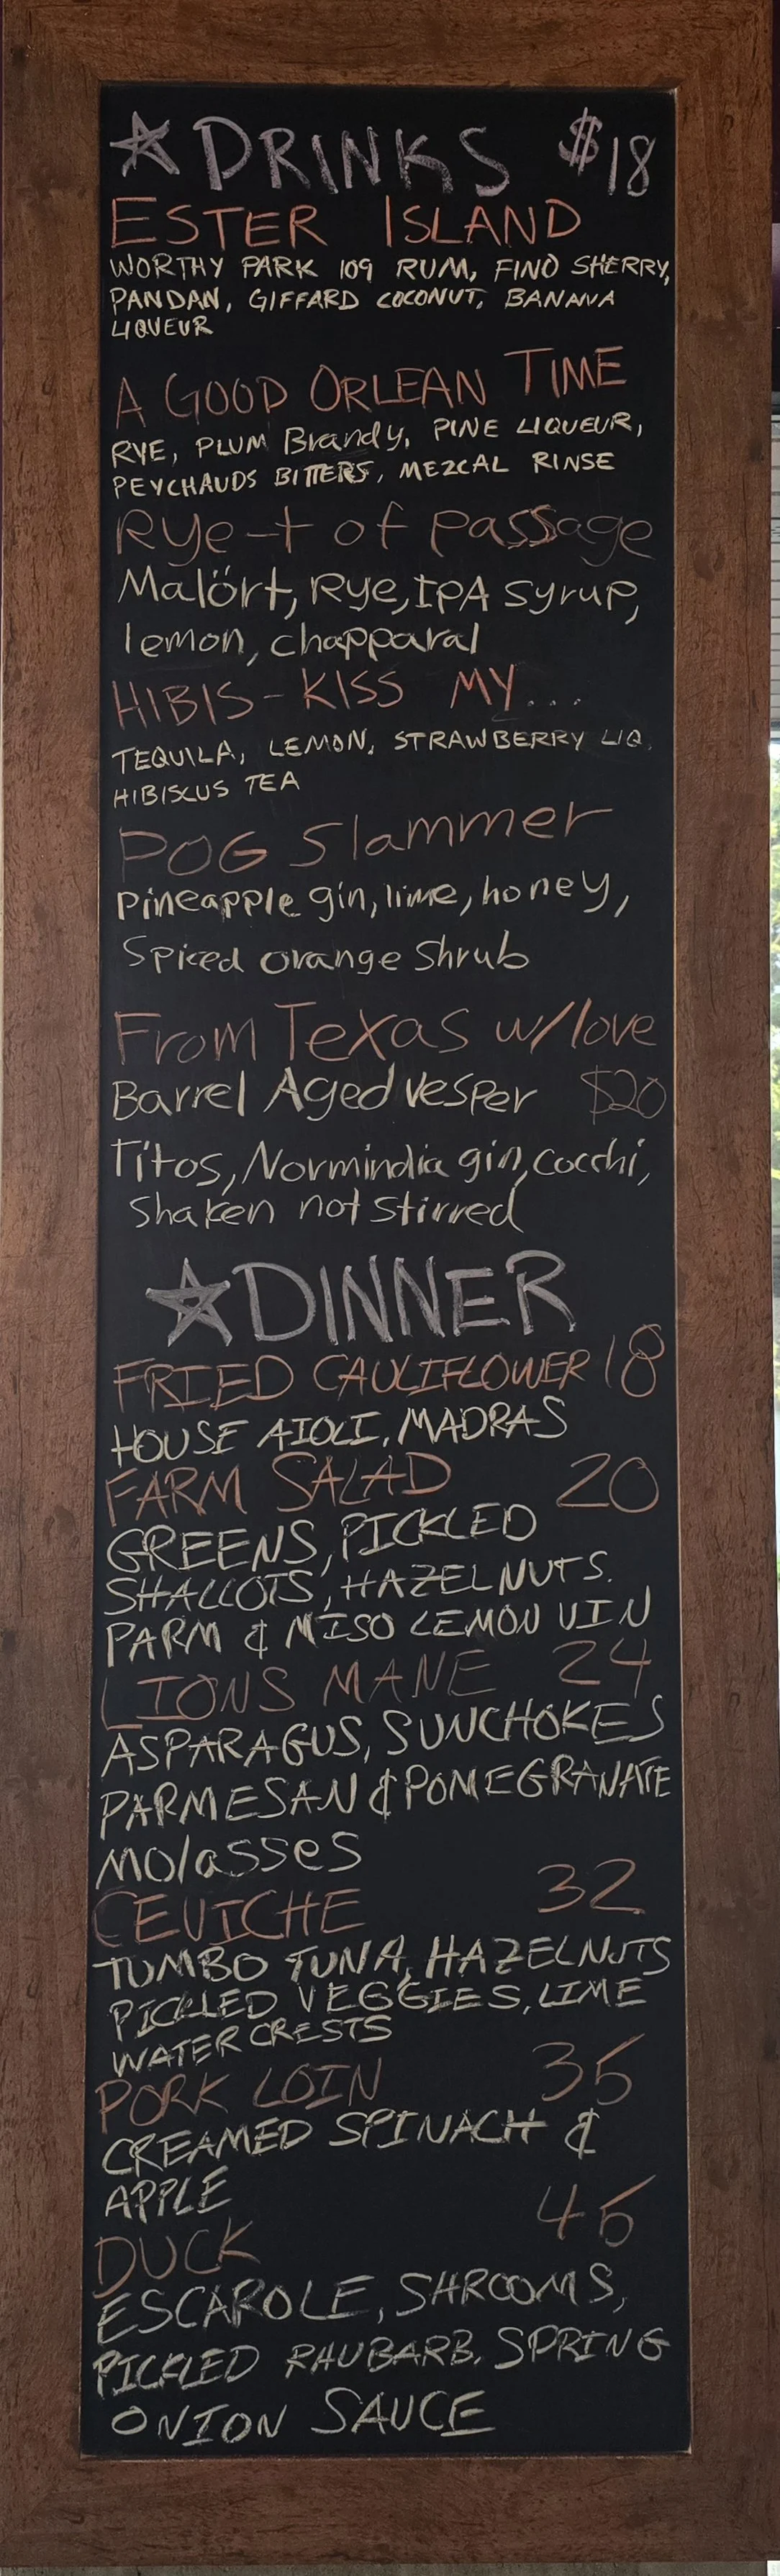 DRINKS $18
ESTER ISLAND
WORTHY PARK 109 RUM, FINO SHERRY,
PANDAN, GIFFARD COCONUT, BANANA
LIQUEUR
A GOOD ORLEAN TIME
RYE, PLUM Brandy, PINE LIQUEUR,
PEYCHAUDS BITTERS, MEZCAL RINSE
Rye-t of passage
Malört, Rye, IPA syrup,
lemon, chapparal
HIBIS-KISS MY...
TEQUILA, LEMON, STRAWBERRY LIQ.
HIBISCUS TEA
POG Slammer
Pineapple gin, lime, honey,
Spiced orange Shrub
From Texas w/love
Barrel Aged Vesper $20
Titos, Normindia gin, Cocchi,
Shaken not Stirred
DINNER
FRIED CAULIFLOWER 18
HOUSE AIOLI, MADRAS
FARM SALAD 20
GREENS, PICKLED
SHALLOTS, HAZELNUTS.
PARM & MISO LEMON VIN
LIONS MANE 24
ASPARAGUS, SUNCHOKES
PARMESAN & POMEGRANATE
MOlasses
CEVICHE 32
TOMBO TUNA, HAZELNUTS
PICKLED VEGGIES, LIME
WATER CRESTS
PORK LOIN 35
CREAMED SPINACH &
APPLE
DUCK 45
ESCAROLE, SHROOMS,
PICKLED RHUBARB, SPRING
ONION SAUCE